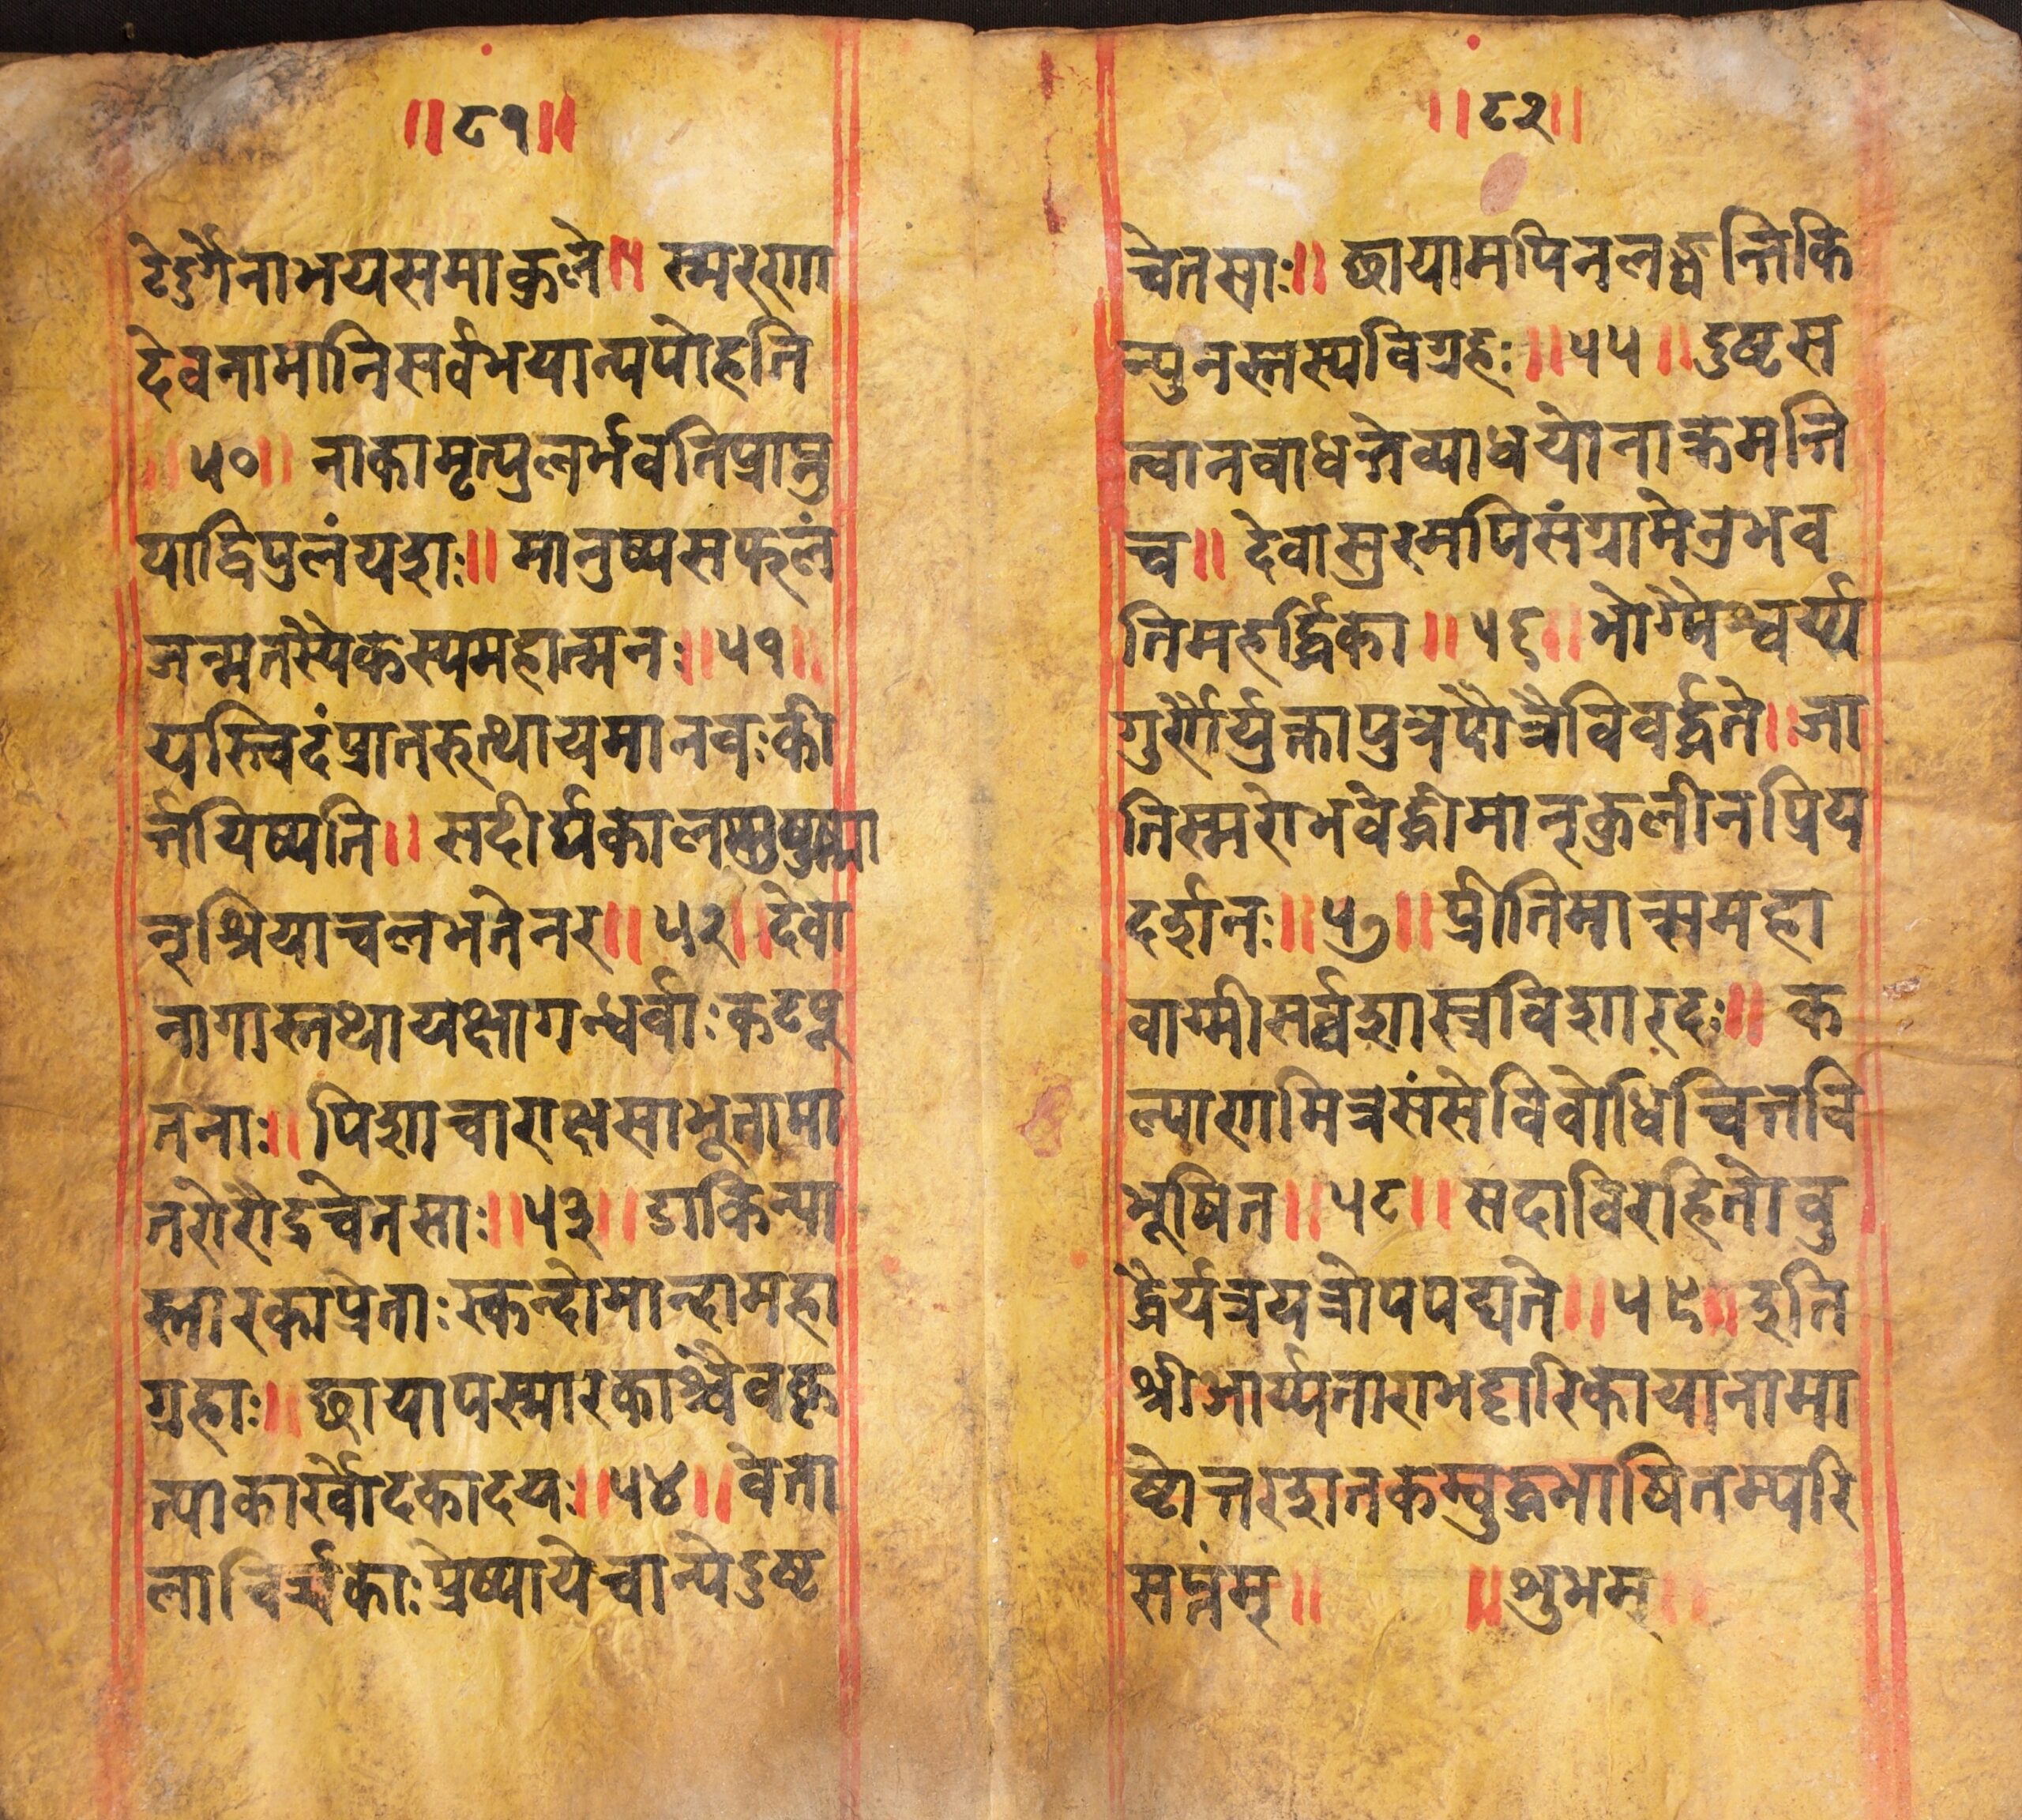 ॥८१॥
टेदुर्गेनाभयसमाकुले॥ स्मरणा
देवनामानिसर्वभयान्यपोहति
॥५०॥ नाकामृत्युलर्भवतिप्राप्नु
याद्विपुलंयशः॥ मानुष्यसफलं
जन्मतस्येकस्यमहात्मनः॥५१॥
यस्त्विदंप्रातरुत्थायमानवःकी
र्त्तयिष्यति॥ सदीर्घकालमायुष्मा
न्श्रियाचलभतेनर॥५२॥देवा
नागास्तथायक्षागन्धर्वाःकटपू
तनाः॥ पिशाचाराक्षसाभूतामा
तरोरौद्रचेतसाः॥५३॥ डाकिन्या
स्तारकाप्रेताःस्कन्दोमान्दामहा
ग्रहाः॥ छायापस्मारकाश्चैवकृ
त्याकार्खोदकादयः॥५४॥ वेता
लाचिर्चकाःप्रेष्यायेचान्येदुष्ट
॥८२॥
चेतसाः॥ छायामपिनलङ्घन्तिकि
न्पुनस्तस्यविग्रहः॥५५॥दुष्टस
त्वानबाधन्तेव्याधयोनाक्रमन्ति
च॥ देवासुरमपिसंग्रामेनुभव
तिमहर्द्धिका॥५६॥ भोग्मैश्वर्य्य
गुर्णैर्युक्तापुत्रपौत्रैविवर्द्धते॥जा
तिस्मरोभवेद्धीमान्कुलीनप्रिय
दर्शनः॥५७॥ प्रीतिमान्समहा
वाग्मीसर्व्वशास्त्रविशारदः॥ क
ल्याणमित्रसंसेविवोधिचित्तवि
भूषित॥५८॥ सदाविरहितोवु
द्धैर्यत्रयत्रोपपद्यते॥५९॥इति
श्रीआर्य्यताराभट्टारिकायानामा
ष्टोत्तरशतकम्बुद्धभाषितम्परि
सप्तंम्॥ ॥शुभम्॥